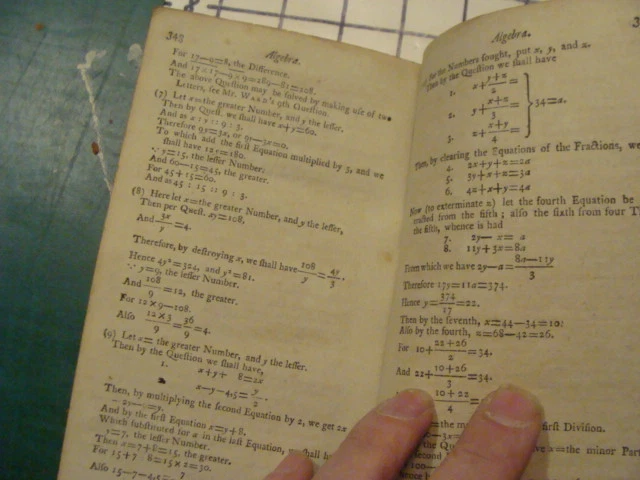 348
Algebra.
For 17—9=8, the Difference.
And 17×17—9×9=189—81=108.
The above Question may be solved by making use of two
Letters, see Mr. WARD's 9th Question.
(7) Let x=the greater Number, and y the lesser.
Then by Quest. we shall have x+y=60.
And x : y :: 9 : 3.
Therefore 9y=3x, or 9y—3x=0.
To which add the first Equation multiplied by 3, and we
shall have 12y=180.
∵ y=15, the lesser Number.
And 60—15=45, the greater.
For 45+15=60.
And 45 : 15 :: 9 : 3.
(8) Here let x=the greater Number, and y the lesser,
Then per Quest. xy=108,
And 3x/y=4.
Therefore, by destroying x, we shall have 108/y=4y/3.
Hence 4y²=324, and y²=81.
∵ y=9, the lesser Number.
And 108/9=12, the greater.
For 12×9=108.
Also 12×3/9=36/9=4.
(9) Let x= the greater Number, and y the lesser.
Then by the Question we shall have,
1. x+y+ 8=2x
x—y—4,5=y/2.
Then, by multiplying the second Equation by 2, we get 2x
And by the first Equation x=y+8.
Which substituted for x in the last Equation, we shall
y=7, the lesser Number.
Then x=7+8=15, the greater.
For 15+7 8=15×2=30.
Also 15—7—4,5=7
Algebra.
for the Numbers sought, put x, y, and z.
Then by the Question we shall have
1. x+y+z/2=
2. y+x+z/3= } 34=a.
3. z+x+y/4=
Then, by clearing the Equations of the Fractions, we
4. 2x+y+z=2a
5. 3y+x+z=3a
6. 4z+x+y=4a
Now (to exterminate z) let the fourth Equation be
tracted from the fifth; also the sixth from four T
the fifth, whence is had
7. 2y— x= a
8. 11y+3x=8a
From which we have 2y—a=8a—11y/3
Therefore 17y=11a=374.
Hence y=374/17=22.
Then by the seventh, x=44—34=10:
Also by the fourth, z=68—42=26.
For 10+22+26/2=34.
And 22+10+26/3=34.
10+22/4
the m
first Division.
x=the minor Part